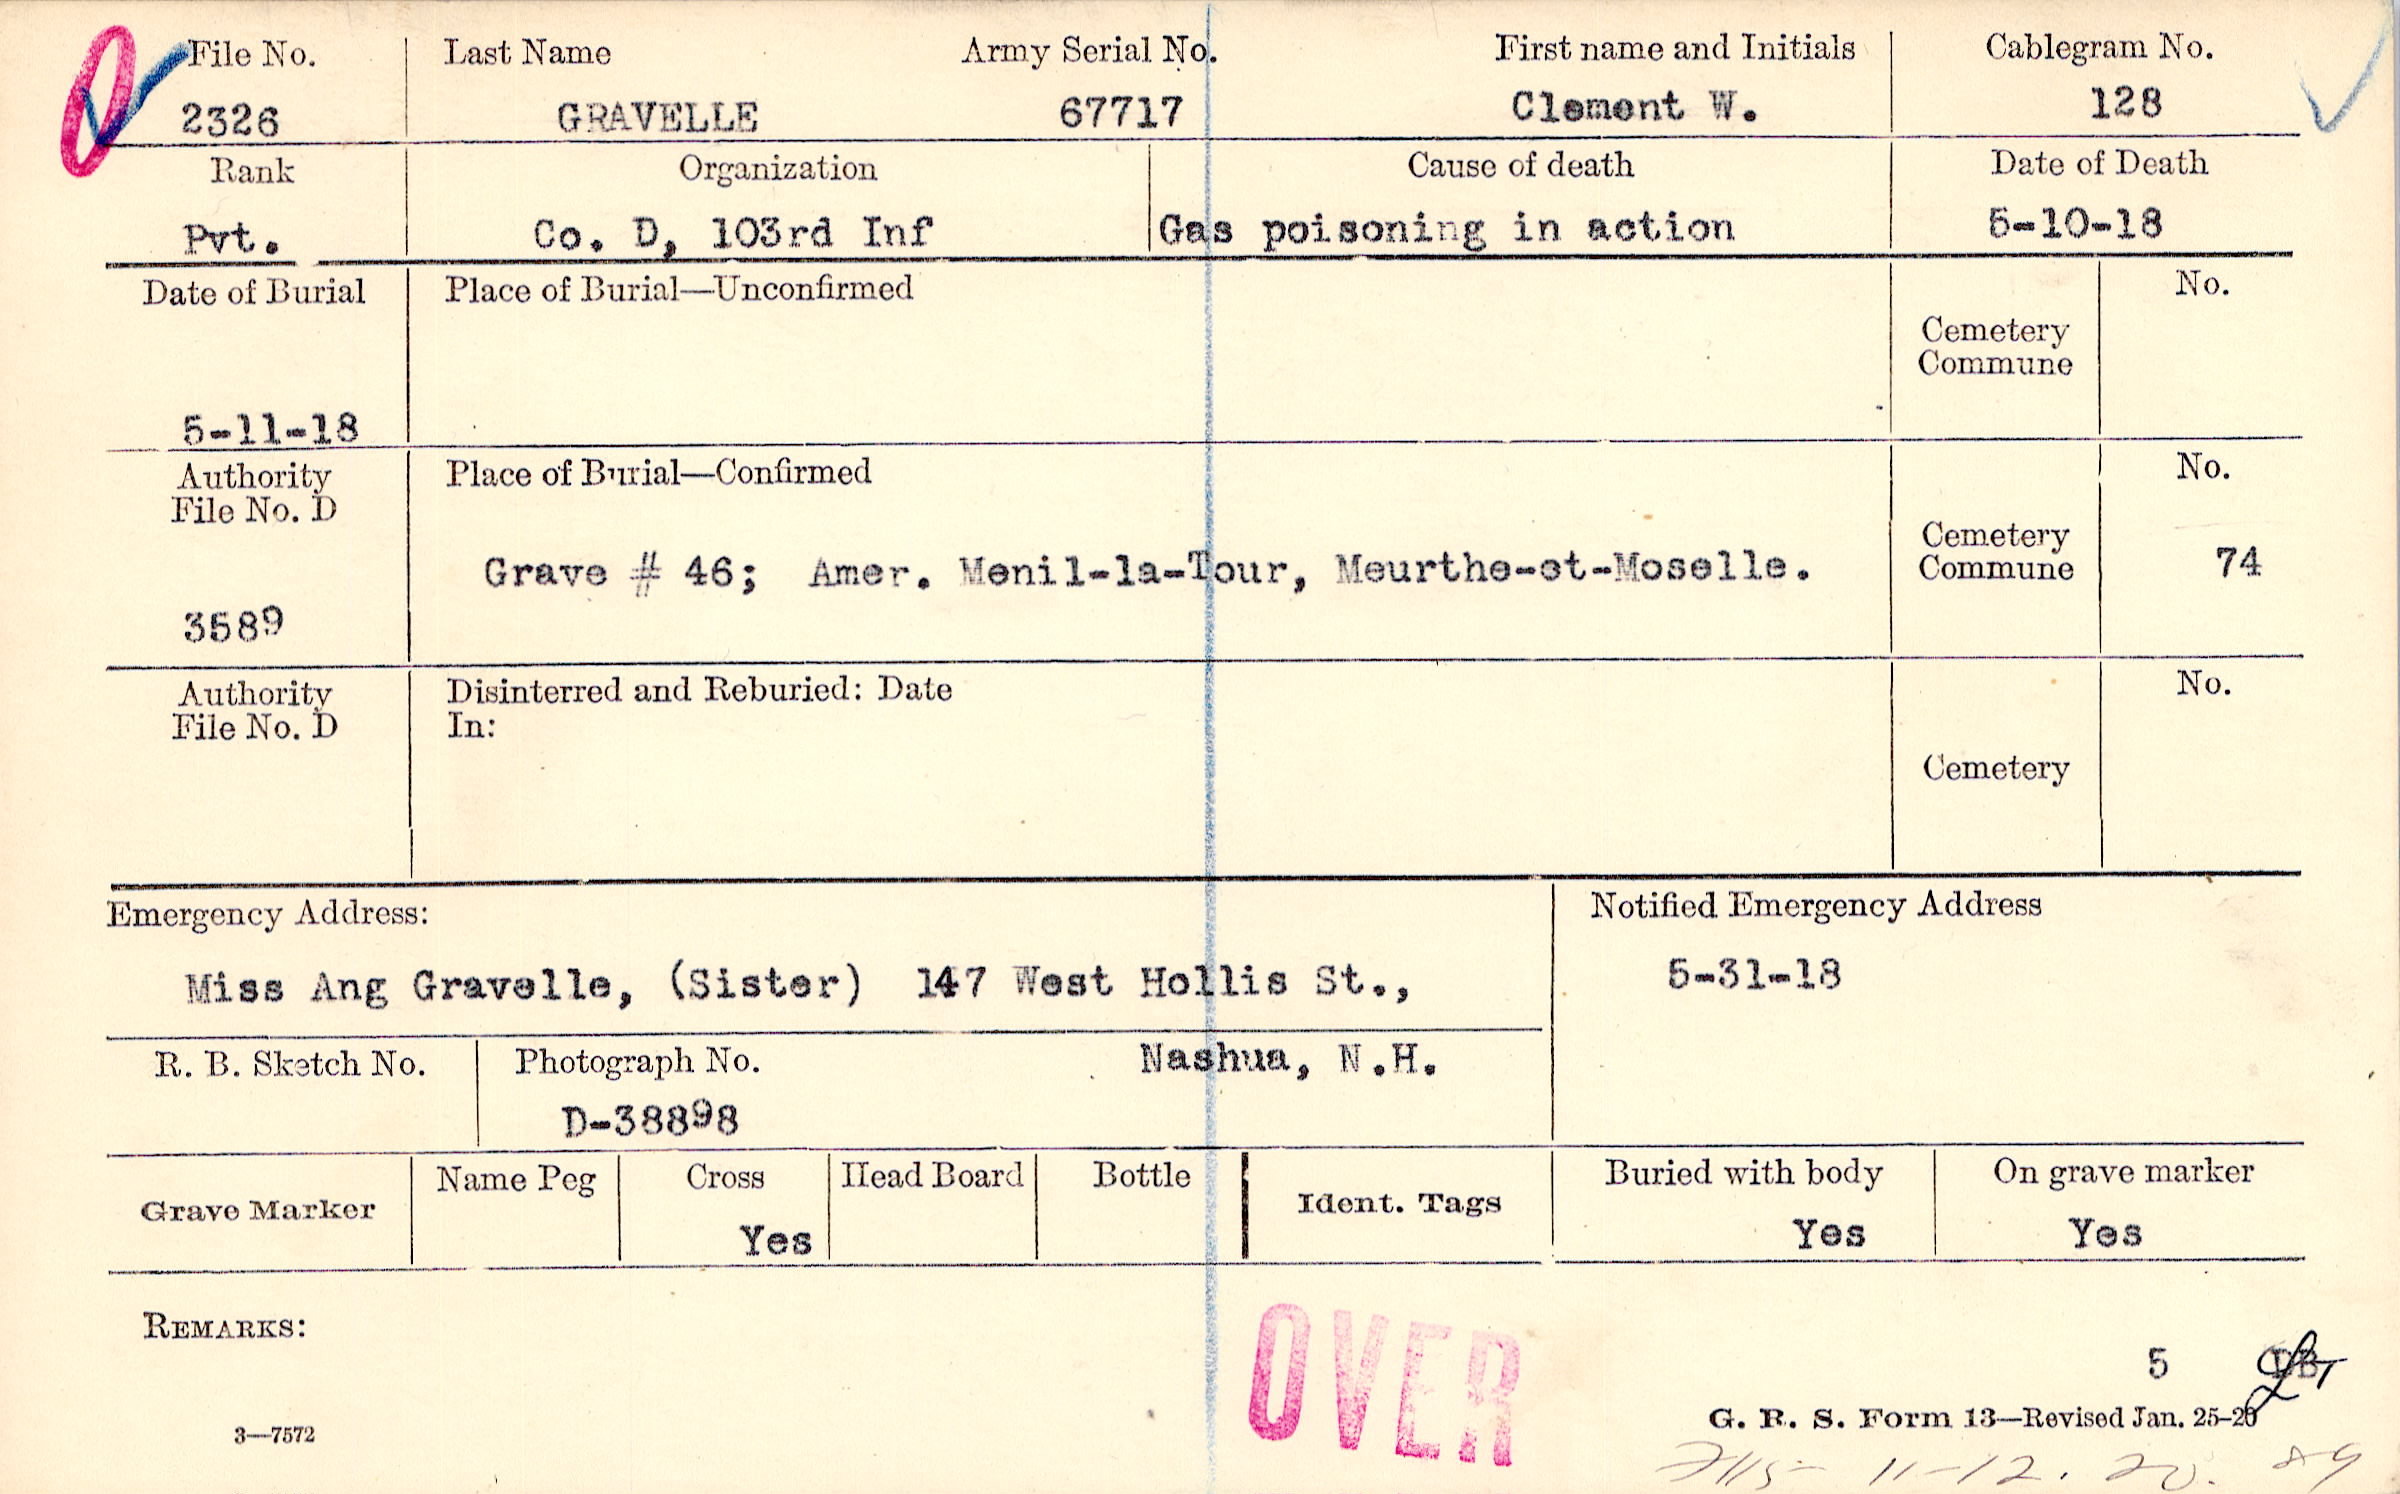 File No. Last Name Army Serial No. First name and Initials Cablegram No.
2326 GRAVELLE 67717 Clement W. 128
Rank Organization Cause of death Date of Death
Pvt. Co. D, 103rd Inf Gas poisoning in action 5-10-18
Date of Burial Place of Burial—Unconfirmed No.
Cemetery
Commune
5-11-18
Authority Place of Burial—Confirmed No.
File No. D
Cemetery
Grave # 46; Amer. Menil-la-Tour, Meurthe-et-Moselle. Commune 74
3589
Authority Disinterred and Reburied: Date No.
File No. D In:
Cemetery
Emergency Address: Notified Emergency Address
Miss Ang Gravelle, (Sister) 147 West Hollis St., 5-31-18
R. B. Sketch No. Photograph No. Nashua, N.H.
D-38898
Grave Marker Name Peg Cross Head Board Bottle Ident. Tags Buried with body On grave marker
Yes Yes Yes
REMARKS:
OVER
5
G. R. S. Form 13—Revised Jan. 25-20
3—7572
11-12. 20.